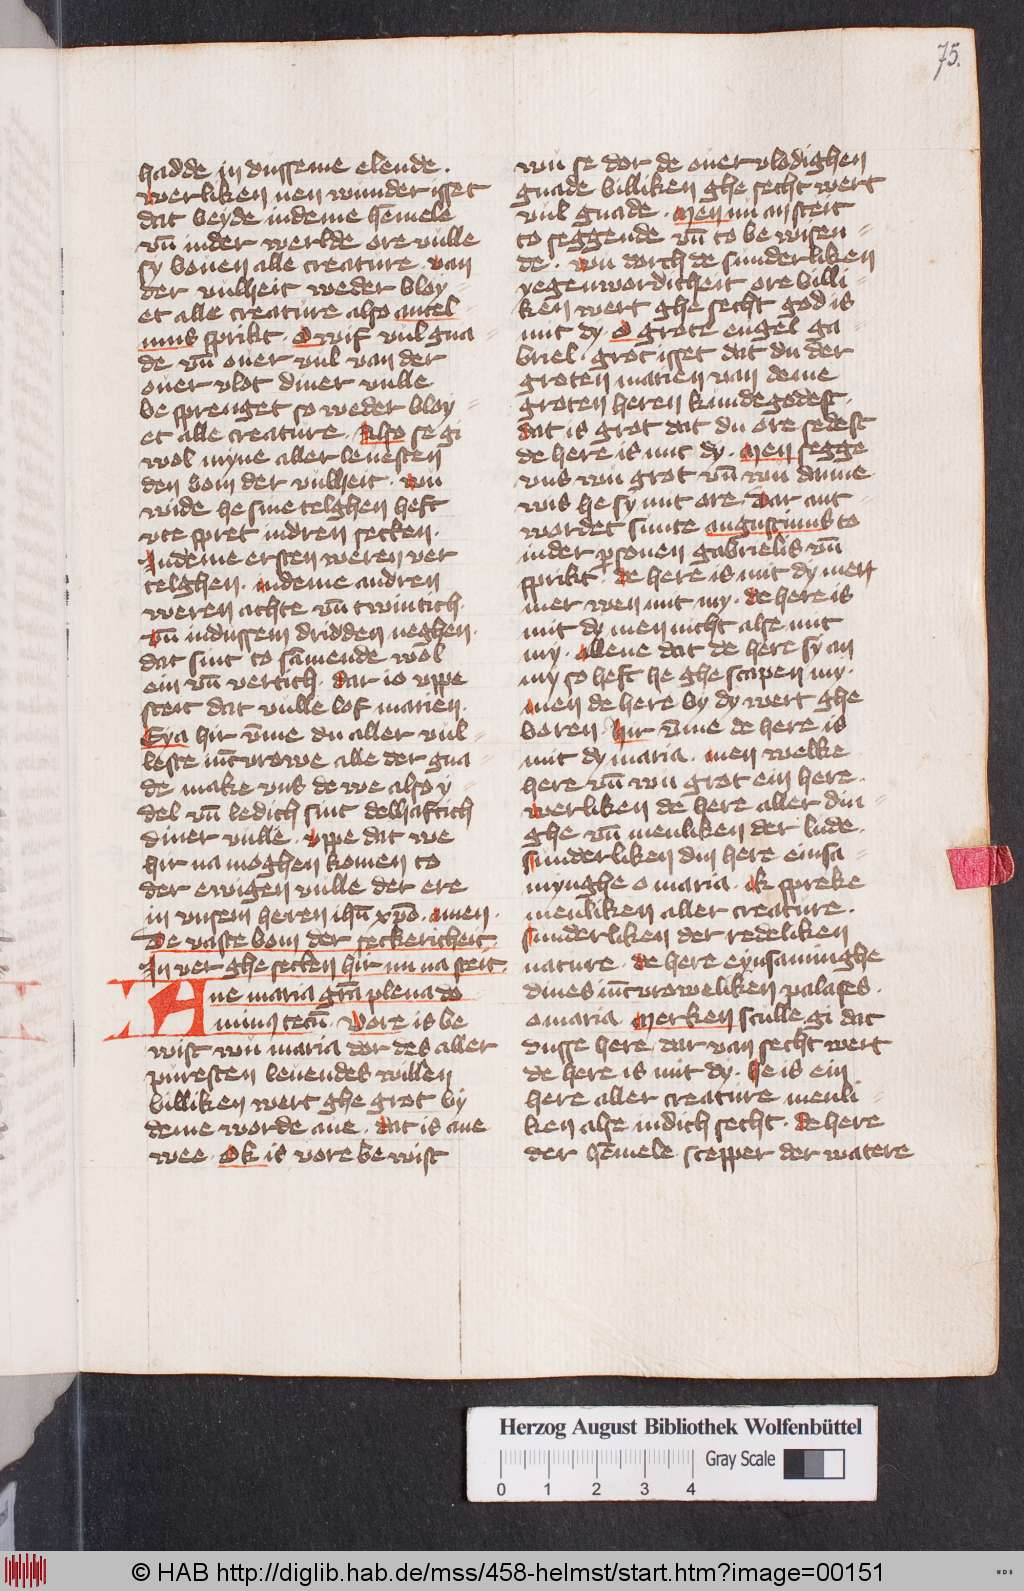 75.
hadde in dusseme elende .
werliken nen wunder isset
dat beyde indeme hēmele
vn̄ inder werlde ore vulle
sy bouen alle creature . van
der vulheit weder bloy-
et alle creature also ancel
mus sprikt . O wif vul gna-
de vn̄ ouer vul van der
ouer vlot diner vulle
be sprenget so weder bloy-
et alle creature . Also se gi
wol myne aller leuesten
den bom der vulheit . wu
wide he sine telghen heft
vte spret indren secken .
Indeme ersten weren ver
telghen . indeme andren
weren achte vn̄ twintich .
vn̄ indussem dridden neghen .
dat sint to sāmende wol
ein vn̄ vertich . dar io vppe
steit dat vulle lof marien .
Eya hir v̄me du aller vul-
leste iūcvrowe alle der gna-
de make vns de we also y-
del vn̄ ledich sint delhaftich
diner vulle . vppe dat we
hir na moghen komen to
der ewigen vulle der ere
in vnsem heren ihū xpō . amen .
De vaste bom der seckericheit
In ver ghe secken hir nu na steit .
Aue maria gr̄a plena do
minus tecū . Vore is be
wist wu maria dor des aller
puresten leuendes willen
billiken wert ghe grot by
deme worde aue . dat is ane
wee . Ok is vore be wist
wu se dor de ouer vlodighen
gnade billiken ghe secht wert
vul gnade . Men nu an steit
to seggende vn̄ to be wisen-
de . wu dorch de sunderliken
yegenwordicheit ore billi-
ken wert ghe secht god is
mit dy . O grote engel ga-
briel . grot isset dat du der
groten marien van deme
groten heren kundegodest .
dat is grot dat du ore sedest
de here is mit dy . Men segge
vns wu grot vn̄ wu danne
wis he sy mit ore . Dar ant-
wordet sunte augustinus to
inder psonen gabrielis vn̄
sprikt . de here is mit dy men
mer wen mit my . de here is
mit dy men nicht alse mit
my . allene dat de here sy an
my so heft he ghe scapen my .
men de here by dy wert ghe
boren . hir v̄me de here is
mit dy maria . men welke
here vn̄ wu grot ein here .
werliken de here aller din-
ghe vn̄ menliken der lude .
sunderliken din here einsa-
mynghe o maria . ik spreke
menliken aller creature .
sunderliken der redeliken
nature . de here eynsaminghe
dines iūcvroweliken palases .
o maria . Merken sculle gi dat
dusse here dar van secht wert
de here is mit dy . he is ein
here aller creature menli-
ken alse iudich secht . de here
der hēmele scepper der watere
Herzog August Bibliothek Wolfenbüttel
Gray Scale
0 1 2 3 4
© HAB http://diglib.hab.de/mss/458-helmst/start.htm?image=00151